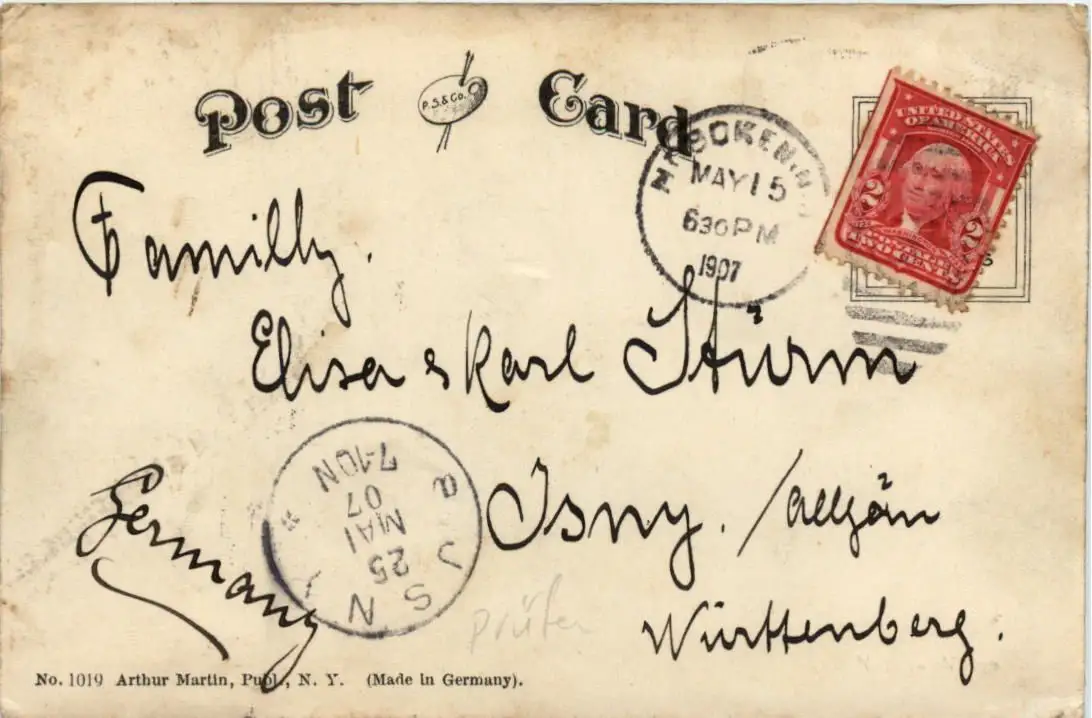 Post Card
P.S.&Co.
HOBOKEN, N.J.
MAY 15
630 PM
1907
UNITED STATES
OF AMERICA
2 2
TWO CENTS
Familly.
Elisa & Karl Stürm
Isny. / Allgäu
Württenberg.
Germany
ISNY
25
MAI
07
7-10N
a
prüfen
No. 1019 Arthur Martin, Publ., N. Y. (Made in Germany).